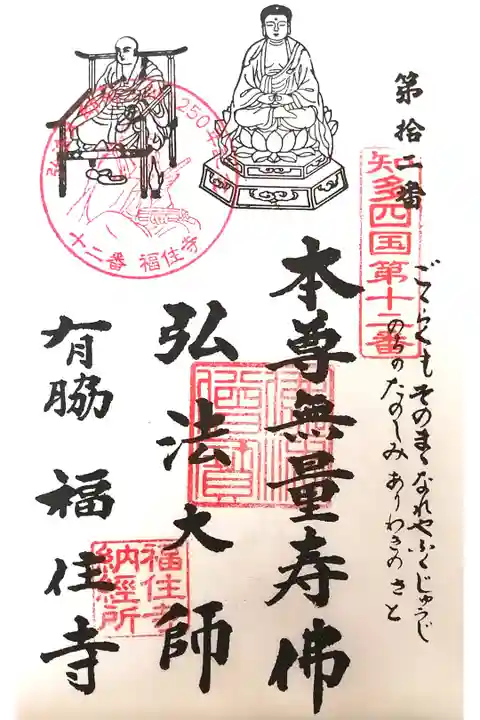 第拾二番
知多四国第十二番
ごくらくも そのまゝなれやふくじゅうじ
のちのたのしみ ありわきの さと
本尊無量寿佛
弘法大師
有脇 福住寺
250年
十二番 福住寺
福住寺
納經所